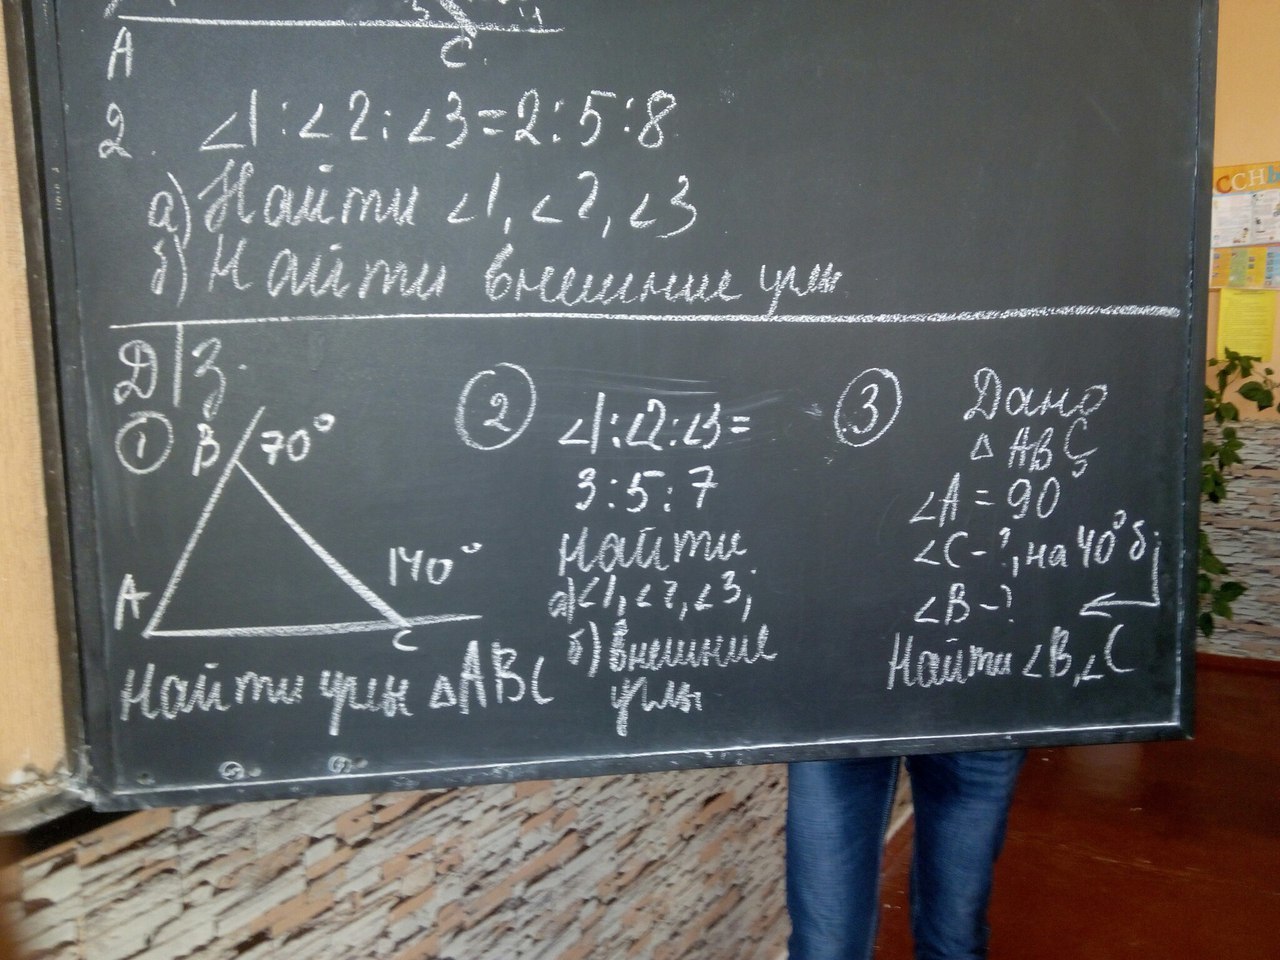 A
C
2. ∠1:∠2:∠3=2:5:8
а) Найти ∠1, ∠2, ∠3
б) Найти внешние углы
Д/З.
1
B 70°
140°
A
C
Найти углы △ABC
2
∠1:∠2:∠3=
3:5:7
Найти
а) ∠1, ∠2, ∠3;
б) внешние
углы
3
Дано
△ABC
∠A = 90
∠C - ?, на 40° б.
∠B - ?
Найти ∠B, ∠C
ССН